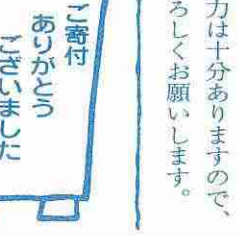 力は十分ありますので、
ろしくお願いします。
ご寄付
ありがとう
ございました